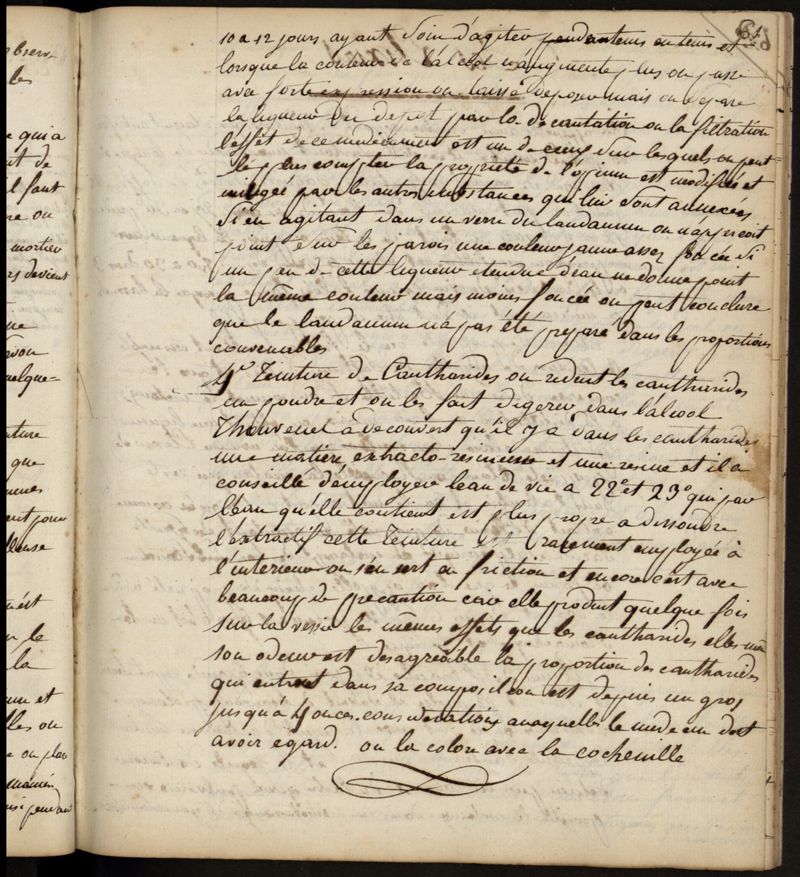 61
10 a 12 jours ayant Soin d'agiter pendant tems en tems et
lorsque la couleur de l'alcool n'augmente plus on passe
avec forte expression on laisse deposer mais on separe
la liqueur du depot par la decantation ou la filtration
l'effèt de ce medicament est un de ceux Sur lesquels on peut
le plus compter la proprieté de l'opium est modifiée et
mitigée par les autres substances qui lui Sont annexées
Si en agitant dans un verre du laudanum on n'apperçoit
point sur les parois une couleur jaune assez foncée Si
un peu de cette liqueur etendue d'eau ne donne point
la même couleur mais moins foncée on peut conclure
que le laudanum n'a pas été preparé dans les proportions
convenables
4° Teinture de Cantharides on reduit les cantharides
en poudre et on les fait digerer dans l'alcool
Thouvenel a decouvert qu'il y a dans les cantharides
une matiere extracto-resineuse et une resine et il a
conseillé d'employer l'eau de vie a 22° et 23° qui par
l'eau qu'elle contient est plus propre a dissoudre
l'extractif cette Teinture est rarement employée à
l'interieur on s'en sert en friction et encore c'est avec
beaucoup de precaution car elle produit quelque fois
Sur la vessie les mêmes effets que les cantharides elles mê
son odeur est desagréable la proportion des cantharides
qui entrent dans sa composition est depuis un gros
jusqu'à 4 onces. considerations auxquelles le medecin doit
avoir egard. on la colore avec la cochenille